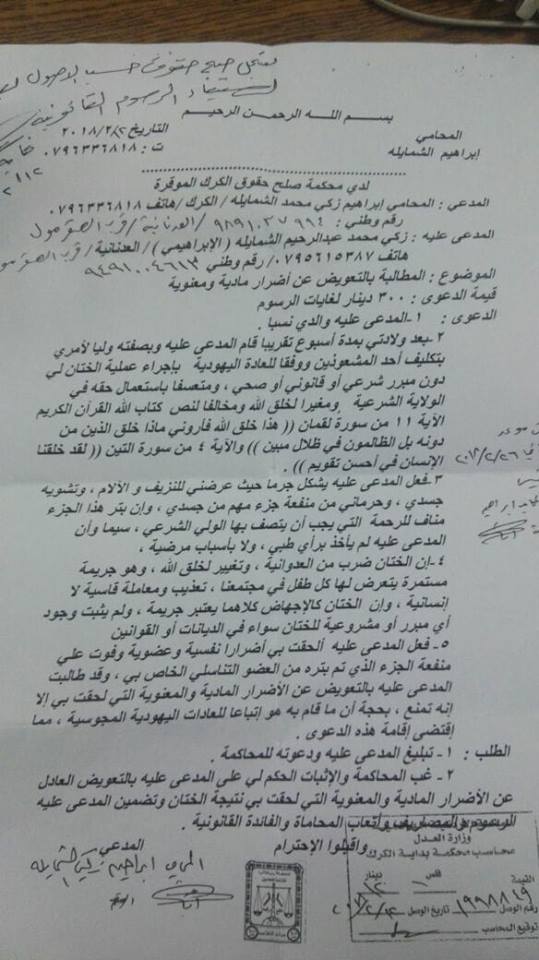 يسجل صلح حقوق حسب الاصول
الرسوم القانونية
بسم الله الرحمن الرحيم
المحامي
التاريخ ٢٠١٨/٢/١٢
إبراهيم الشمايله
ت : ٠٧٩٦٣٣٦٨١٨
لدى محكمة صلح حقوق الكرك الموقرة
المدعي : المحامي إبراهيم زكي محمد الشمايله / الكرك / هاتف ٠٧٩٦٣٣٦٨١٨
رقم وطني : ٩٨٩١٠٣٧٩٩٤ / العدنانية / قرب
المدعى عليه : زكي محمد عبدالرحيم الشمايله ( الإبراهيمي ) / العدنانية / قرب
هاتف ٠٧٩٥٦١٥٣٨٧ / رقم وطني ٩٤٩١٠٠٤٦١٣
الموضوع : المطالبة بالتعويض عن أضرار مادية ومعنوية
قيمة الدعوى : ٣٠٠ دينار لغايات الرسوم
الدعوى : ١-المدعى عليه والدي نسبا .
٢-بعد ولادتي بمدة أسبوع تقريبا قام المدعى عليه وبصفته وليا لأمري
بتكليف أحد المشعوذين ووفقا للعادة اليهودية بإجراء عملية الختان لي
دون مبرر شرعي أو قانوني أو صحي ، ومتعسفا باستعمال حقه في
الولاية الشرعية ومغيرا لخلق الله ومخالفا لنص كتاب الله القرآن الكريم
الآية ١١ من سورة لقمان (( هذا خلق الله فأروني ماذا خلق الذين من
دونه بل الظالمون في ظلال مبين )) والآية ٤ من سورة التين (( لقد خلقنا
الإنسان في أحسن تقويم )) .
٣-فعل المدعى عليه يشكل جرما حيث عرضني للنزيف والآلام ، وتشويه
جسدي ، وحرماني من منفعة جزء مهم من جسدي ، وإن بتر هذا الجزء
مناف للرحمة التي يجب أن يتصف بها الولي الشرعي ، سيما وأن
المدعى عليه لم يأخذ برأي طبي ، ولا بأسباب مرضية ،
٤-إن الختان ضرب من العدوانية ، وتغيير لخلق الله ، وهو جريمة
مستمرة يتعرض لها كل طفل في مجتمعنا ، تعذيب ومعاملة قاسية لا
إنسانية ، وإن الختان كالإجهاض كلاهما يعتبر جريمة ، ولم يثبت وجود
أي مبرر أو مشروعية للختان سواء في الديانات أو القوانين
٥- فعل المدعى عليه ألحقت بي أضرارا نفسية وعضوية وفوت علي
منفعة الجزء الذي تم بتره من العضو التناسلي الخاص بي ، وقد طالبت
المدعى عليه بالتعويض عن الأضرار المادية والمعنوية التي لحقت بي إلا
إنه تمنع ، بحجة أن ما قام به هو إتباعا للعادات اليهودية المجوسية ، مما
إقتضى إقامة هذه الدعوى .
الطلب : ١- تبليغ المدعى عليه ودعوته للمحاكمة .
٢- غب المحاكمة والإثبات الحكم لي على المدعى عليه بالتعويض العادل
عن الأضرار المادية والمعنوية التي لحقت بي نتيجة الختان وتضمين المدعى عليه
الرسوم والمصاريف وأتعاب المحاماة والفائدة القانونية .
واقبلوا الإحترام
المدعي
المحامي ابراهيم زكي الشمايله
وزارة العدل
محاسب محكمة بداية الكرك
القيمة
فلس
دينار
رقم الوصل
١٩٩٨٨١٩
تاريخ الوصل
توقيع المحاسب